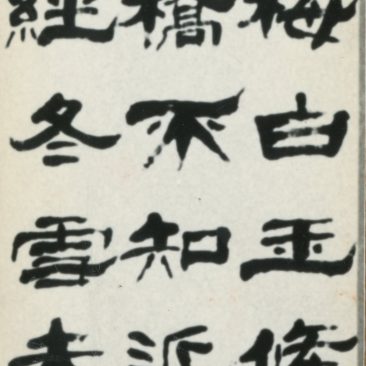 梅白玉條
橋不知近
經冬雪未